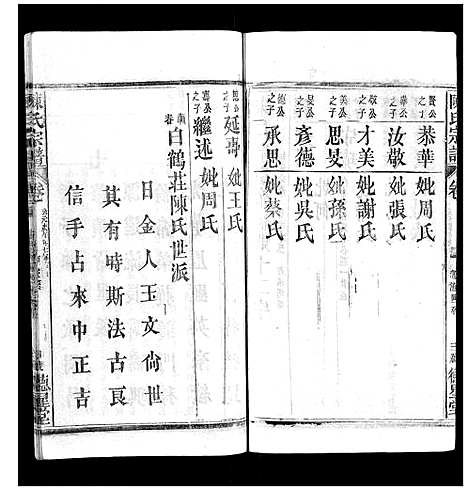 陳氏宗譜 卷
賢公之子 恭華 妣周氏
華公之子 汝敬 妣張氏
敬公之子 才美 妣謝氏
美公之子 思旻 妣孫氏
旻公之子 彥德 妣吳氏
德公之子 承思 妣蔡氏
思公之子 延哥 妣王氏
哥公之子 繼述 妣周氏
白鶴莊陳氏世派
日金人玉文尙世
其有時斯法古良
信手占來中正吉
陳氏宗譜 卷